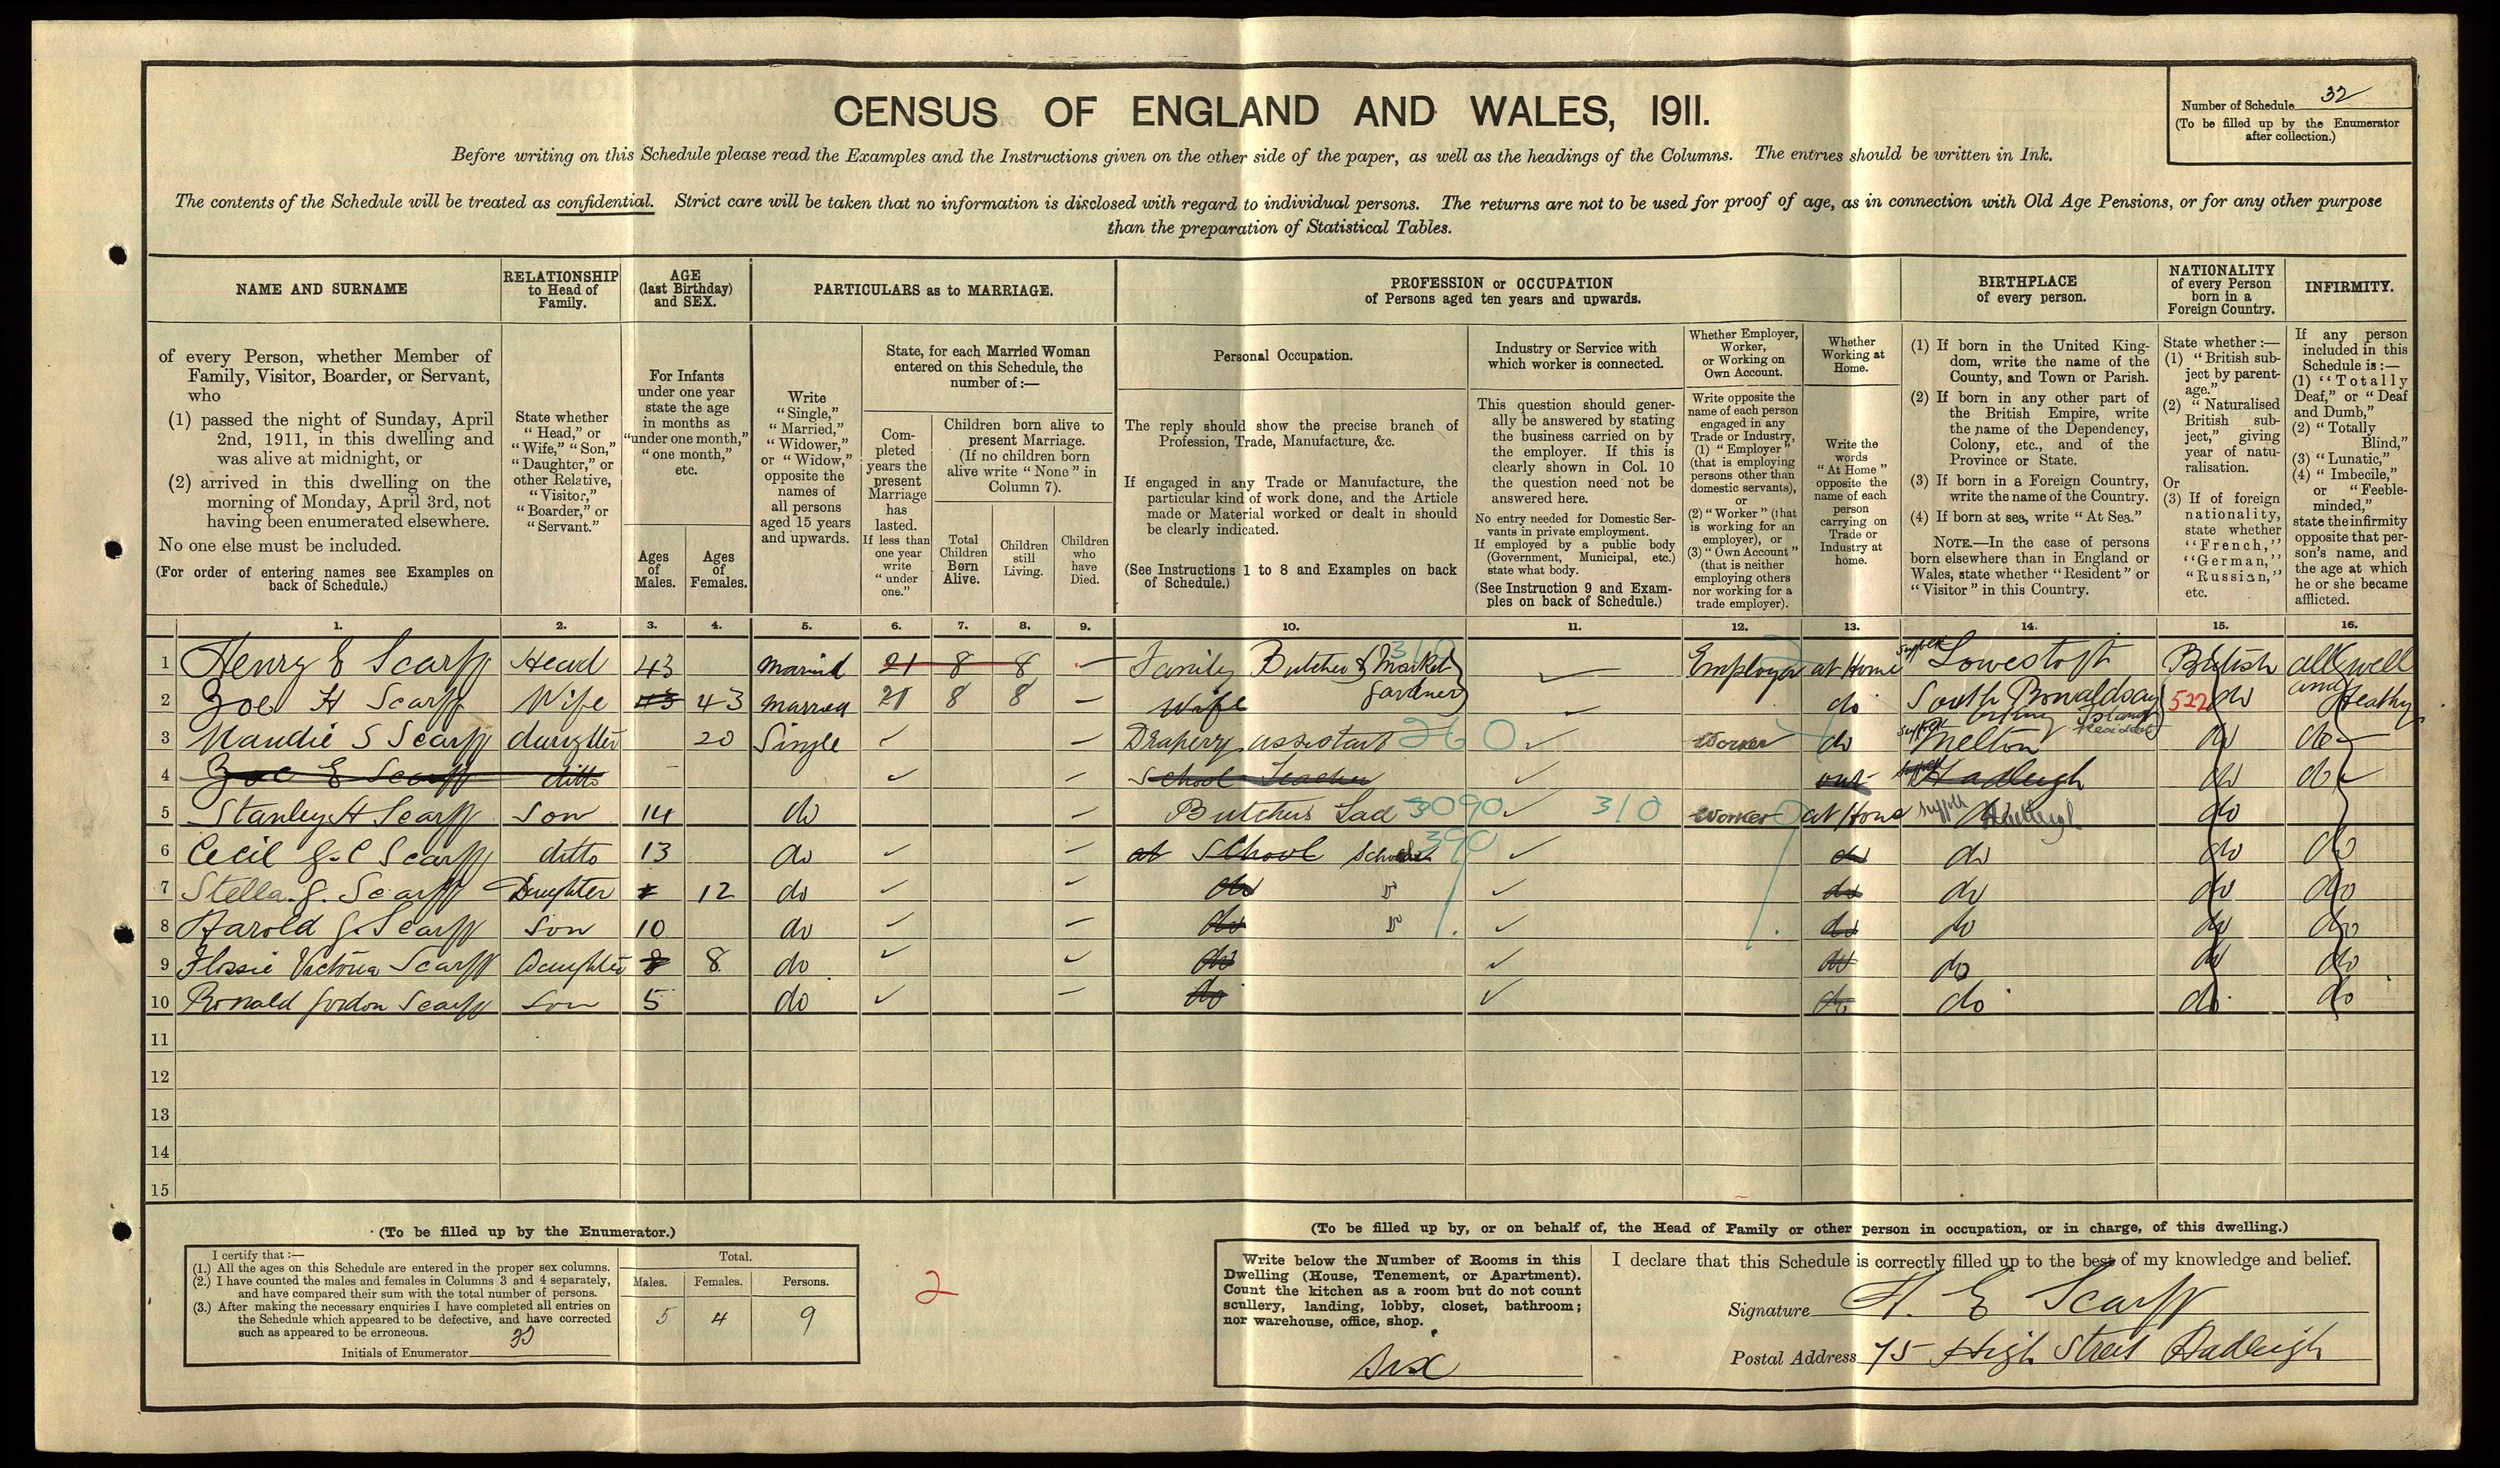 CENSUS OF ENGLAND AND WALES, 1911.
Number of Schedule 32
(To be filled up by the Enumerator after collection.)
Before writing on this Schedule please read the Examples and the Instructions given on the other side of the paper, as well as the headings of the Columns. The entries should be written in Ink.
The contents of the Schedule will be treated as confidential. Strict care will be taken that no information is disclosed with regard to individual persons. The returns are not to be used for proof of age, as in connection with Old Age Pensions, or for any other purpose
than the preparation of Statistical Tables.
NAME AND SURNAME
of every Person, whether Member of
Family, Visitor, Boarder, or Servant,
who
(1) passed the night of Sunday, April
2nd, 1911, in this dwelling and
was alive at midnight, or
(2) arrived in this dwelling on the
morning of Monday, April 3rd, not
having been enumerated elsewhere.
No one else must be included.
(For order of entering names see Examples on
back of Schedule.)
RELATIONSHIP
to Head of
Family.
State whether
"Head," or
"Wife," "Son,"
"Daughter," or
other Relative,
"Visitor,"
"Boarder," or
"Servant."
AGE
(last Birthday)
and SEX.
For Infants
under one year
state the age
in months as
"under one month,"
"one month,"
etc.
Ages
of
Males.
Ages
of
Females.
PARTICULARS as to MARRIAGE.
Write
"Single,"
"Married,"
"Widower,"
or "Widow,"
opposite the
names of
all persons
aged 15 years
and upwards.
State, for each Married Woman
entered on this Schedule, the
number of:—
Com-
pleted
years the
present
Marriage
has
lasted.
If less than
one year
write
"under
one."
Children born alive to
present Marriage.
(If no children born
alive write "None" in
Column 7).
Total
Children
Born
Alive.
Children
still
Living.
Children
who
have
Died.
PROFESSION or OCCUPATION
of Persons aged ten years and upwards.
Personal Occupation.
The reply should show the precise branch of
Profession, Trade, Manufacture, &c.
If engaged in any Trade or Manufacture, the
particular kind of work done, and the Article
made or Material worked or dealt in should
be clearly indicated.
(See Instructions 1 to 8 and Examples on back
of Schedule.)
Industry or Service with
which worker is connected.
This question should gener-
ally be answered by stating
the business carried on by
the employer. If this is
clearly shown in Col. 10
the question need not be
answered here.
No entry needed for Domestic Ser-
vants in private employment.
If employed by a public body
(Government, Municipal, etc.)
state what body.
(See Instruction 9 and Exam-
ples on back of Schedule.)
Whether Employer,
Worker,
or Working on
Own Account.
Write opposite the
name of each person
engaged in any
Trade or Industry,
(1) "Employer"
(that is employing
persons other than
domestic servants),
or
(2) "Worker" (that
is working for an
employer), or
(3) "Own Account"
(that is neither
employing others
nor working for a
trade employer).
Whether
Working at
Home.
Write the
words
"At Home"
opposite the
name of each
person
carrying on
Trade or
Industry at
home.
BIRTHPLACE
of every person.
(1) If born in the United King-
dom, write the name of the
County, and Town or Parish.
(2) If born in any other part of
the British Empire, write
the name of the Dependency,
Colony, etc., and of the
Province or State.
(3) If born in a Foreign Country,
write the name of the Country.
(4) If born at sea, write "At Sea."
NOTE.—In the case of persons
born elsewhere than in England or
Wales, state whether "Resident" or
"Visitor" in this Country.
NATIONALITY
of every Person
born in a
Foreign Country.
State whether:—
(1) "British sub-
ject by parent-
age."
(2) "Naturalised
British sub-
ject," giving
year of natu-
ralisation.
Or
(3) If of foreign
nationality,
state whether
"French,"
"German,"
"Russian,"
etc.
INFIRMITY.
If any person
included in this
Schedule is:—
(1) "Totally
Deaf," or "Deaf
and Dumb,"
(2) "Totally
Blind,"
(3) "Lunatic,"
(4) "Imbecile,"
or "Feeble-
minded,"
state the infirmity
opposite that per-
son's name, and
the age at which
he or she became
afflicted.
1. 2. 3. 4. 5. 6. 7. 8. 9. 10. 11. 12. 13. 14. 15. 16.
1 Henry E Scarff Head 43 Married 21 8 8 — Family Butcher & Market gardner 310 Employer at Home Suffolk Lowestoft British all well
2 Zoe H Scarff Wife 43 43 Married 21 8 8 — Wife do South Ronaldsay Orkney Islands Resident 522 do and Heathy
3 Maudie S Scarff daughter 20 Single — Drapery assistant 260 Worker do Suffolk Melton do do
4 Zoe E Scarff ditto — School Teacher out Suffolk Hadleigh do do
5 Stanley H Scarff Son 14 do — Butchers Lad 3090 310 Worker at Home Suffolk do Hadleigh do
6 Cecil J. C Scarff ditto 13 do — at School School 390 do do do do
7 Stella. J. Scarff Daughter 12 do — do D do do do do
8 Harold J. Scarff Son 10 do — do D do do do do
9 Flossie Victoria Scarff Daughter 8 8 do — do do do do do
10 Ronald Gordon Scarff Son 5 do — do do do do do
11
12
13
14
15
(To be filled up by the Enumerator.)
I certify that:—
(1.) All the ages on this Schedule are entered in the proper sex columns.
(2.) I have counted the males and females in Columns 3 and 4 separately,
and have compared their sum with the total number of persons.
(3.) After making the necessary enquiries I have completed all entries on
the Schedule which appeared to be defective, and have corrected
such as appeared to be erroneous.
Initials of Enumerator
Total.
Males. Females. Persons.
5 4 9
2
(To be filled up by, or on behalf of, the Head of Family or other person in occupation, or in charge, of this dwelling.)
Write below the Number of Rooms in this
Dwelling (House, Tenement, or Apartment).
Count the kitchen as a room but do not count
scullery, landing, lobby, closet, bathroom;
nor warehouse, office, shop.
six
I declare that this Schedule is correctly filled up to the best of my knowledge and belief.
Signature H. E Scarff
Postal Address 75 High Street Hadleigh